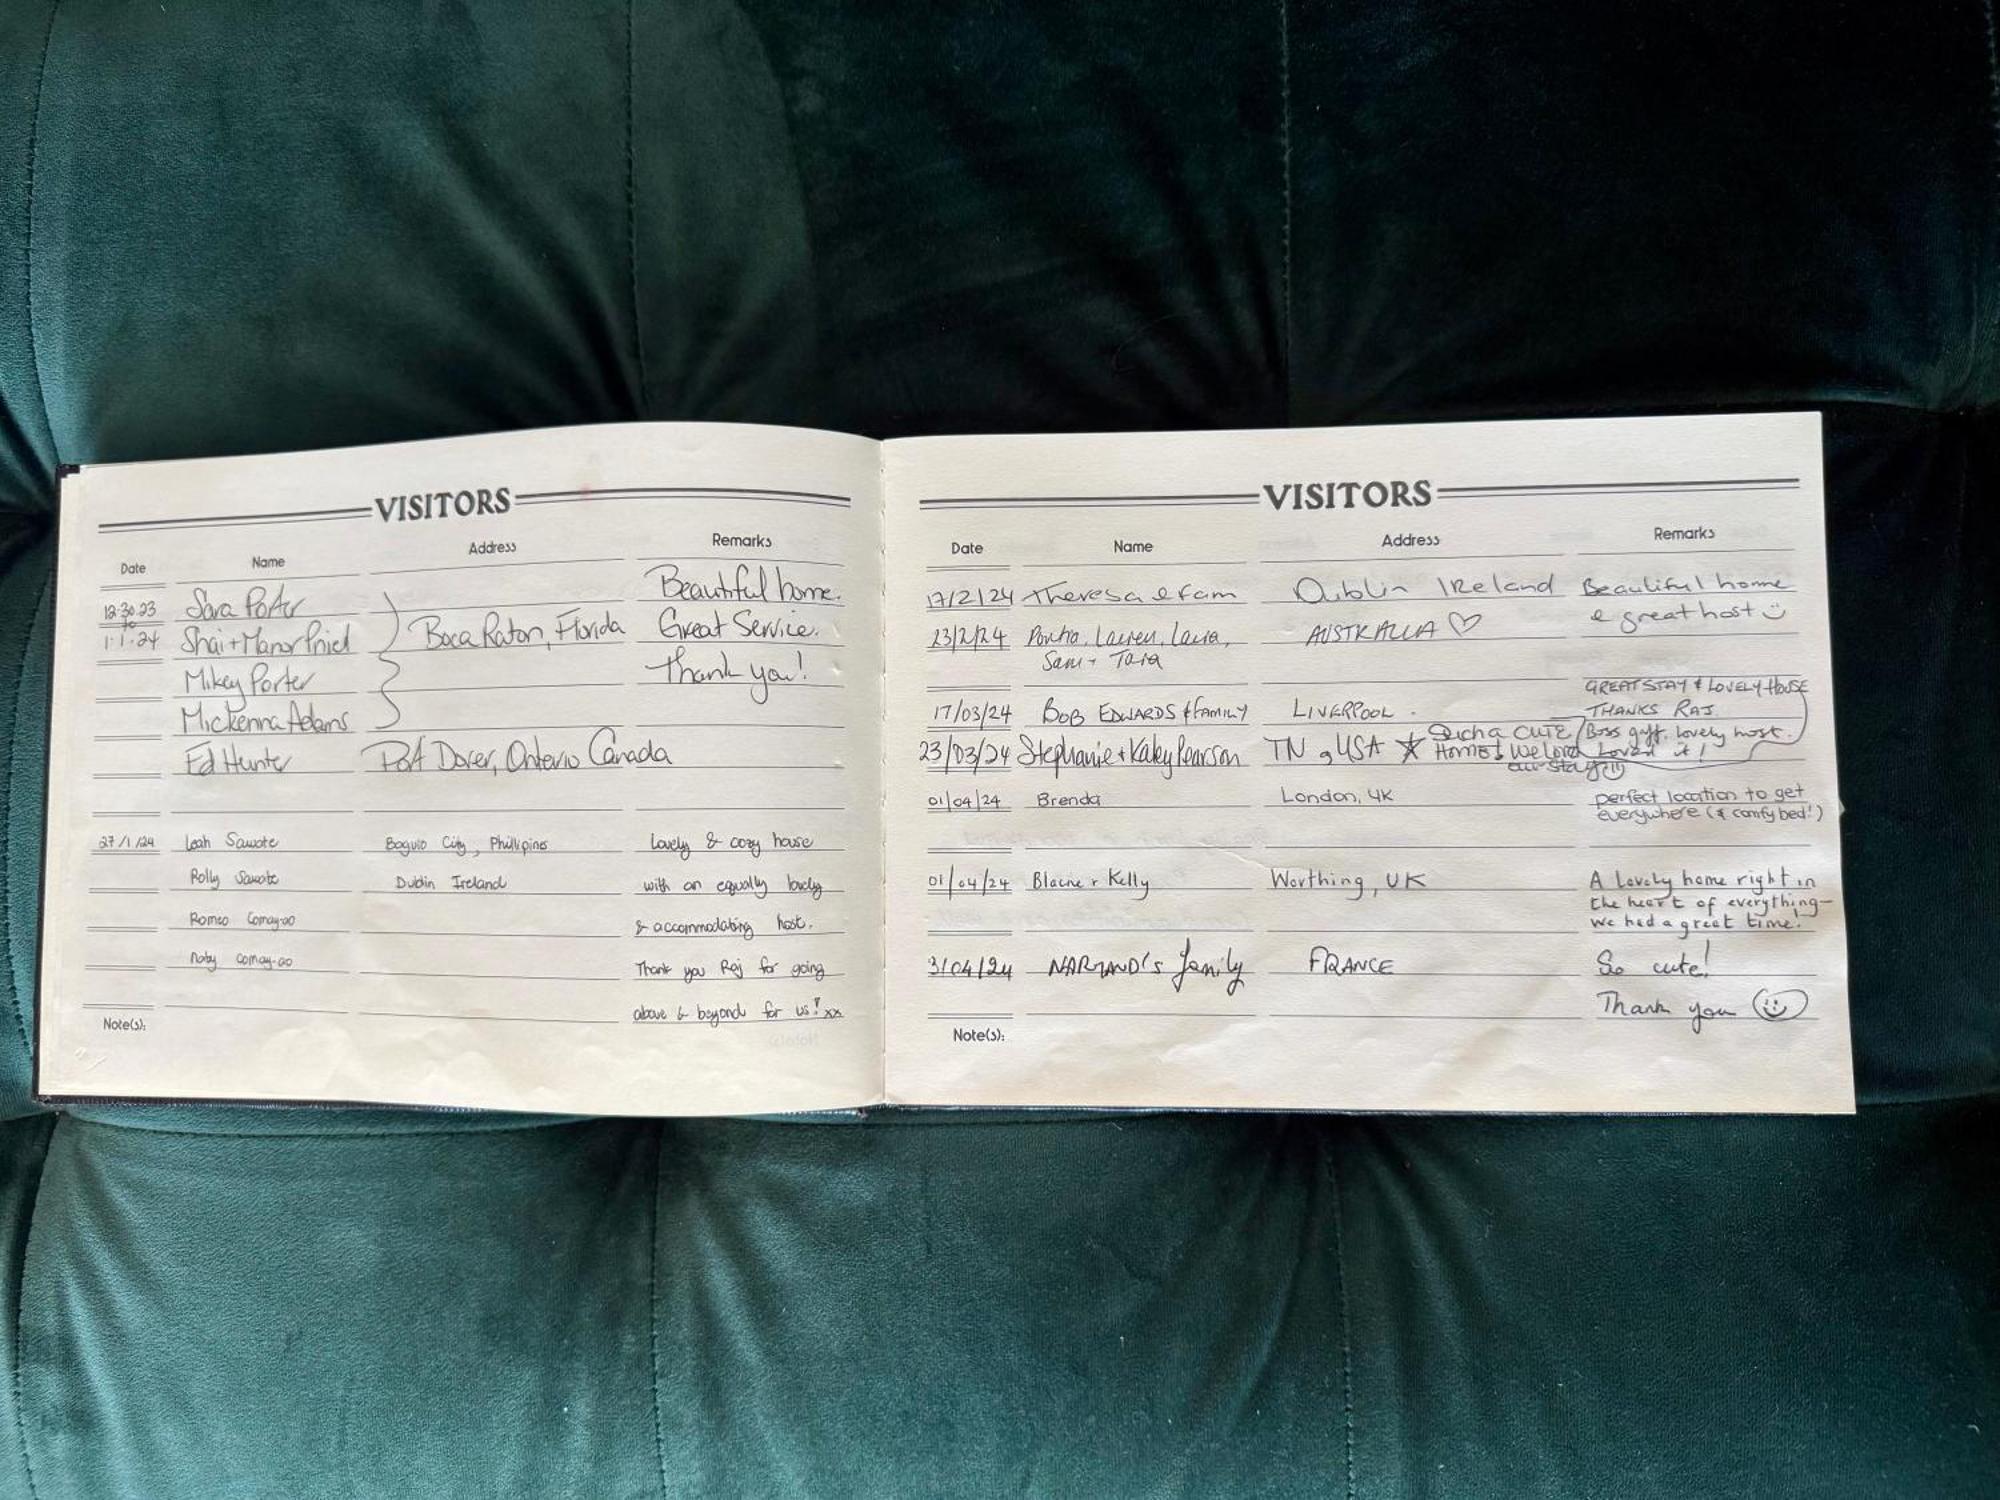 VISITORS
Date Name Address Remarks
12.30.23 Sara Porter Beautiful home.
to
1.1.24 Shai + Manor Priel Boca Raton, Florida Great Service.
Mikey Porter Thank you!
Mickenna Adams
Ed Hunter Port Dover, Ontario Canada
27/1/24 Leah Sawate Baguio City, Phillipines Lovely & cozy house
Rolly Sawate Dublin Ireland with an equally lovely
Romeo Comay-ao & accommodating host.
Noby Comay-ao Thank you Raj for going
above & beyond for us! xx
Note(s):
VISITORS
Date Name Address Remarks
17/2/24 Theresa & fam Dublin IReland Beautiful home
& great host
23/2/24 Lauren, Laura, AUSTRALIA ♡
Sam + Tara
GREAT STAY & LOVELY HOUSE
17/03/24 BOB EDWARDS & FAMILY LIVERPOOL. THANKS RAJ.
Boss gaff, lovely host.
Loved it!
23/03/24 Stephanie + Kaley Pearson TN, USA ★ Such a CUTE
Home! We loved
our stay
01/04/24 Brenda London, UK perfect location to get
everywhere (& comfy bed!)
01/04/24 Blaine + Kelly Worthing, UK A lovely home right in
the heart of everything-
we had a great time!
3/04/24 family FRANCE So cute!
Thank you
Note(s):